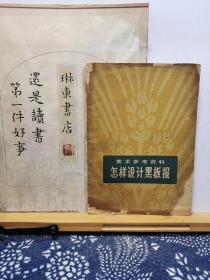 琳東書店
還是讀書
第一件好事
美术参考资料
怎样设计黑板报